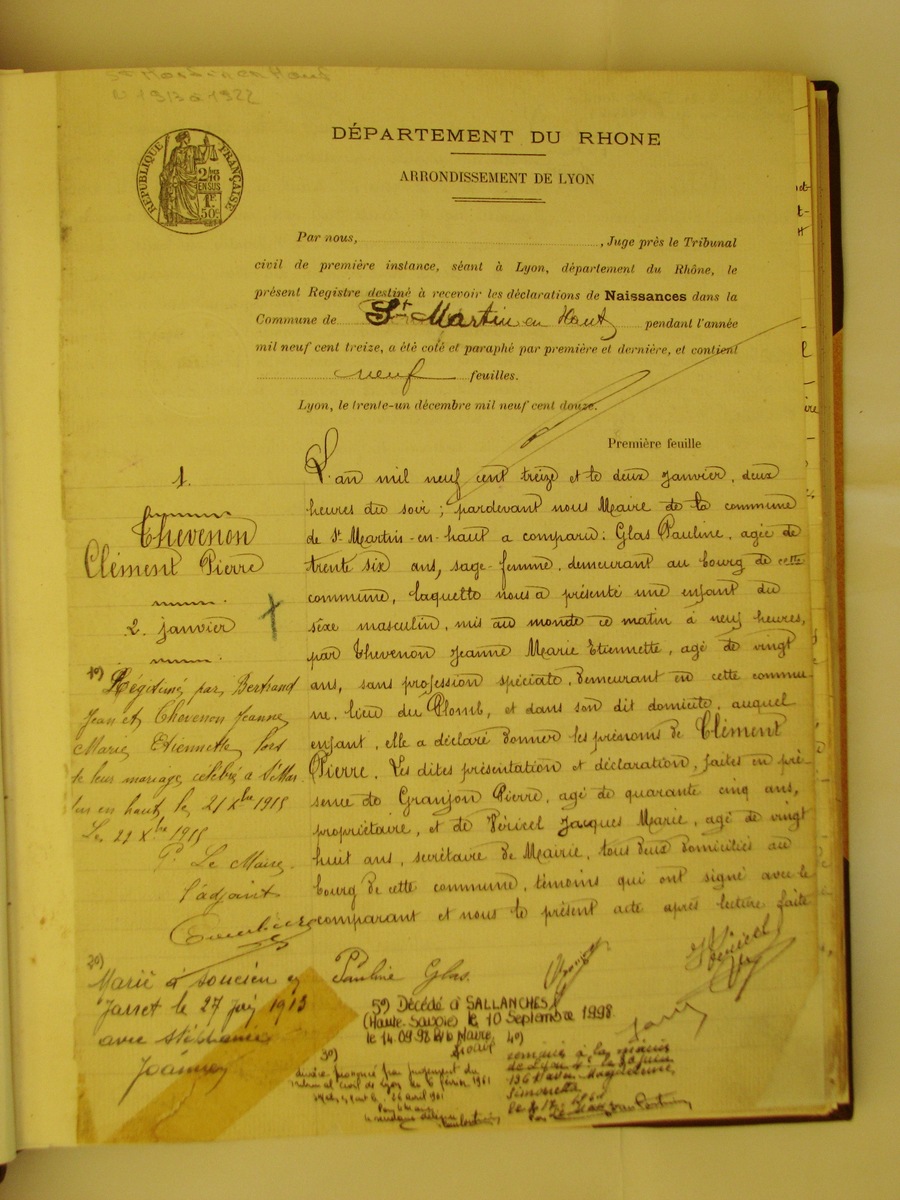 St Martin en Haut
1913 à 1922
DÉPARTEMENT DU RHONE
ARRONDISSEMENT DE LYON
RÉPUBLIQUE FRANÇAISE
2/10
EN SUS
1F
50c
Par nous, , Juge près le Tribunal
civil de première instance, séant à Lyon, département du Rhône, le
présent Registre destiné à recevoir les déclarations de Naissances dans la
Commune de St Martin en Haut pendant l'année
mil neuf cent treize, a été coté et paraphé par première et dernière, et contient
neuf feuilles.
Lyon, le trente-un décembre mil neuf cent douze.
Première feuille
1.
Thevenon
Clément Pierre
2 janvier
L'an mil neuf cent treize et le deux Janvier, deux
heures du soir ; pardevant nous Maire de la commune
de St Martin-en-haut a comparu : Glas Pauline, agée de
trente six ans, sage-femme, demeurant au bourg de cette
commune, laquelle nous a présenté une enfant du
sexe masculin, mis au monde ce matin à neuf heures,
par Thevenon Jeanne Marie Etiennette, agé de vingt
ans, sans profession spéciale, demeurant en cette commu
ne, lieu du Plomb, et dans son dit domicile, auquel
enfant, elle a déclaré donner les prénoms de Clément
Pierre. Les dites présentation et déclaration, faites en pré
sence de Granjon Pierre, agé de quarante cinq ans,
propriétaire, et de Véricel Jacques Marie, agé de vingt
huit ans, secrétaire de Mairie, tous deux domiciliés au
bourg de cette commune, témoins qui ont signé avec le
comparant et nous le présent acte après lecture faite
Pauline Glas
Véricel
1º)
Légitimé par Bertrand
Jean et Thevenon Jeanne
Marie Etiennette lors
de leur mariage célébré à St Mar
tin en haut, le 21 Xbre 1918
Le 22 Xbre 1918
P. Le Maire
l'adjoint
2º)
Marié à Soucieu en
Jarret le 27
avec Stéphanie
3º)
divorce prononcé par jugement du
tribunal civil de Lyon du 6 février 1961
4º)
5º) Décédé à SALLANCHES
(Haute-Savoie) le 10 Septembre 1998
le 14.09.98 Maire